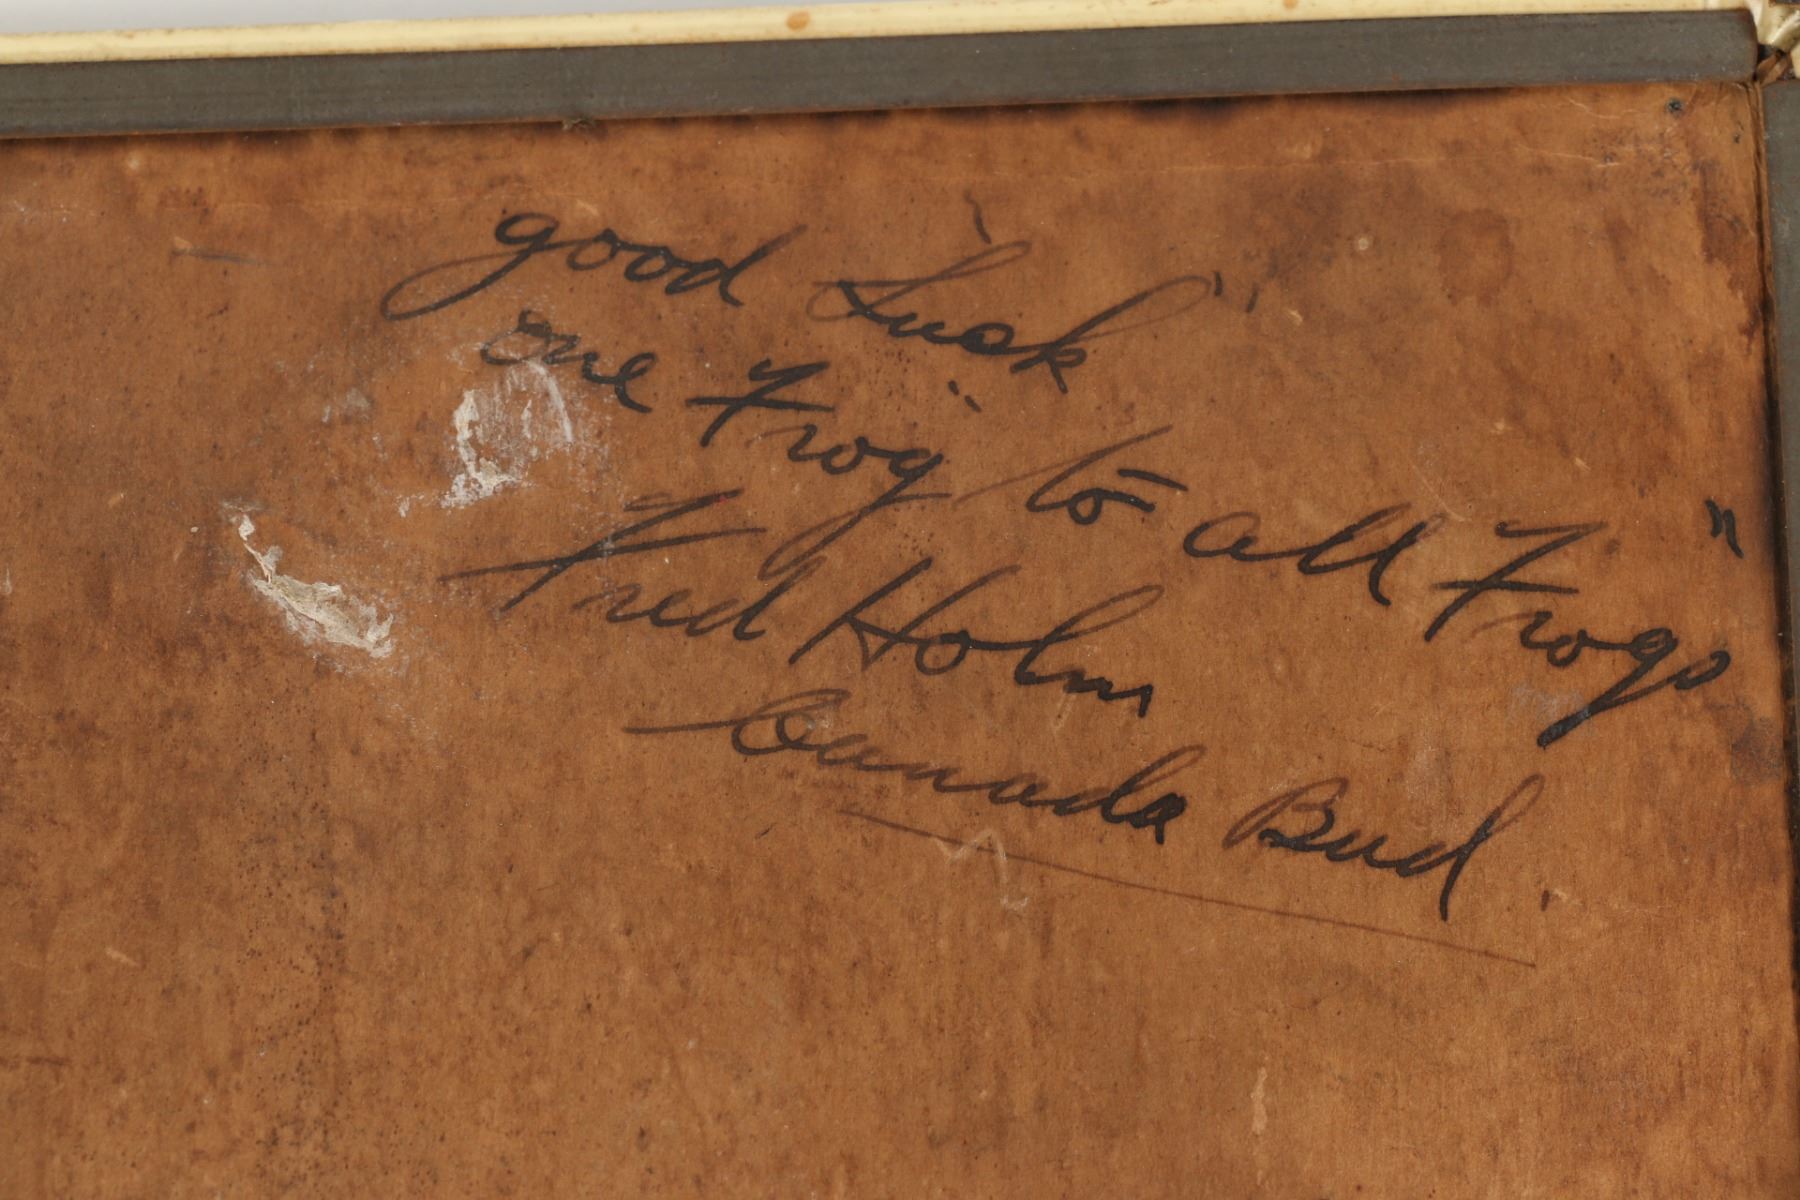 good Luck"
one Frog" to all Frogs"
Fred Holm
Canada Bud.